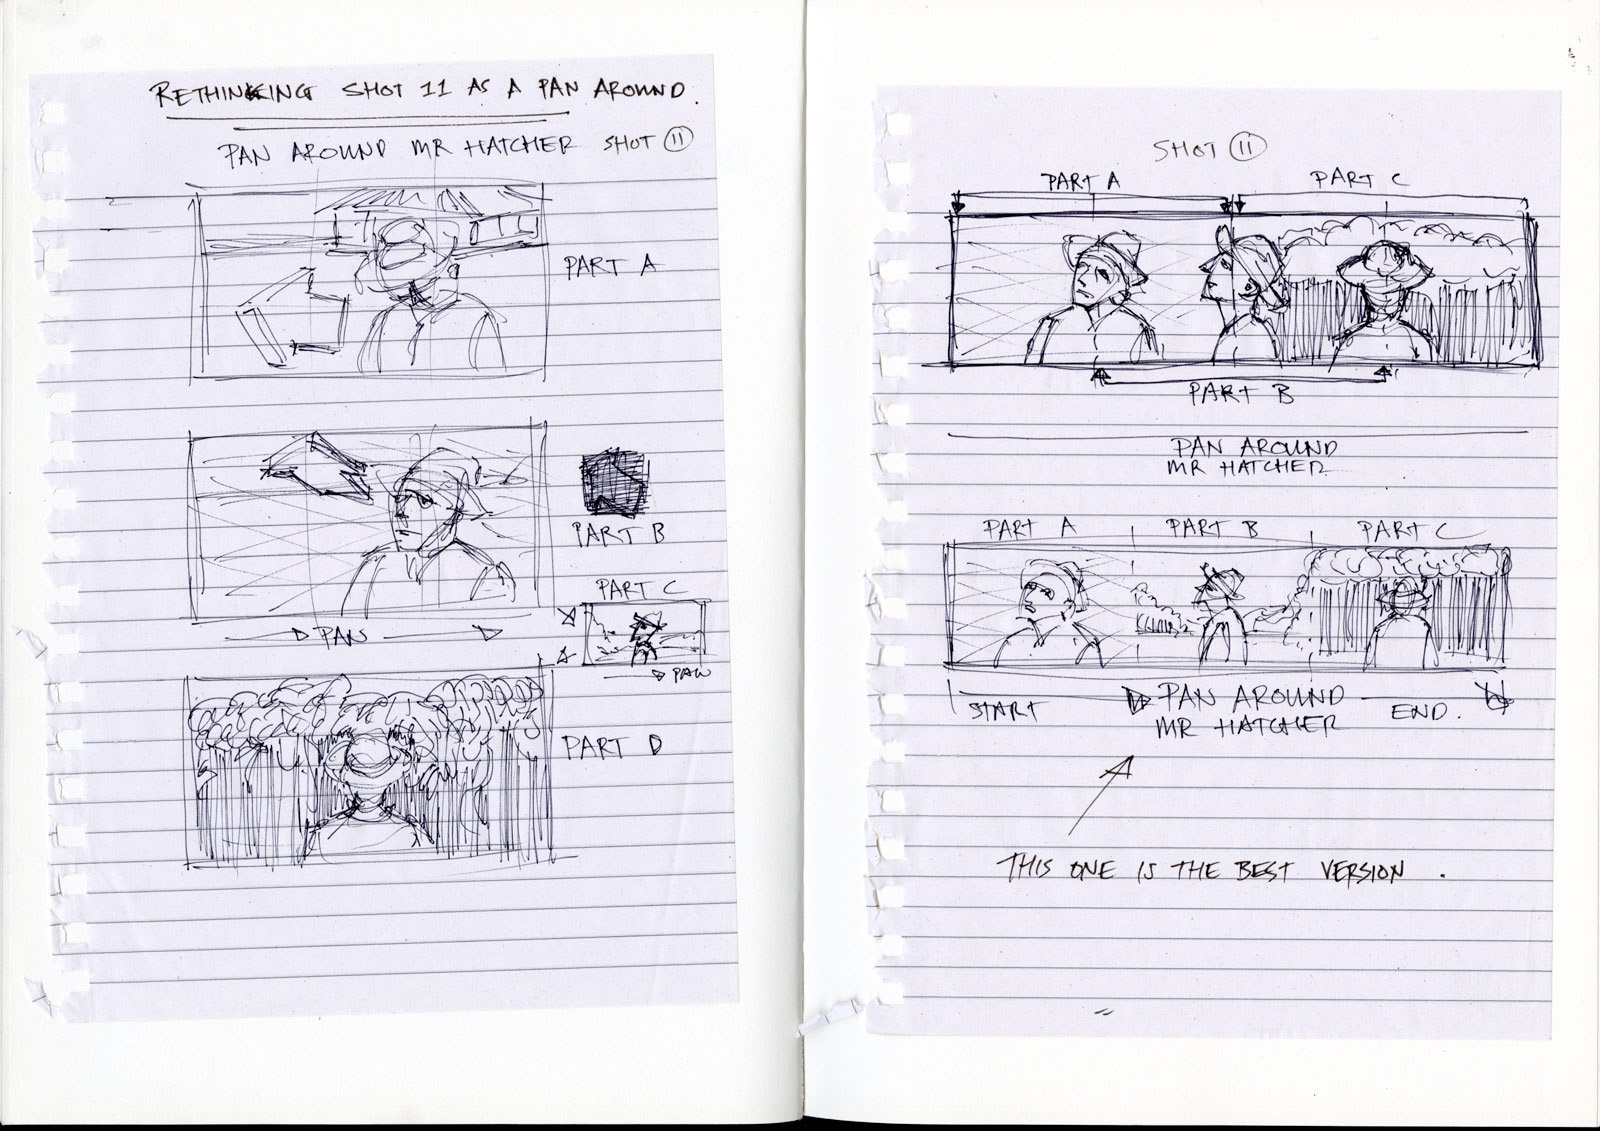 RETHINKING SHOT 11 AS A PAN AROUND.
PAN AROUND MR HATCHER SHOT 11
PART A
PART B
PART C
PAN
PAN
PART D
SHOT 11
PART A
PART C
PART B
PAN AROUND
MR HATCHER
PART A
PART B
PART C
START
PAN AROUND
MR HATCHER
END.
THIS ONE IS THE BEST VERSION.